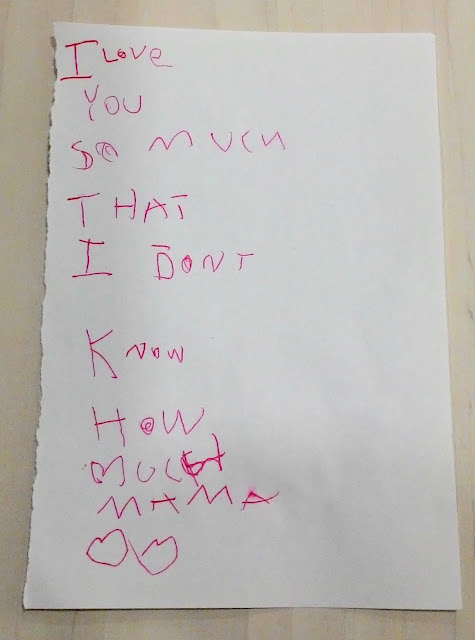 I LOVE
YOU
SO MUCH
THAT
I DONT
KNOW
HOW
MUCH
MAMA